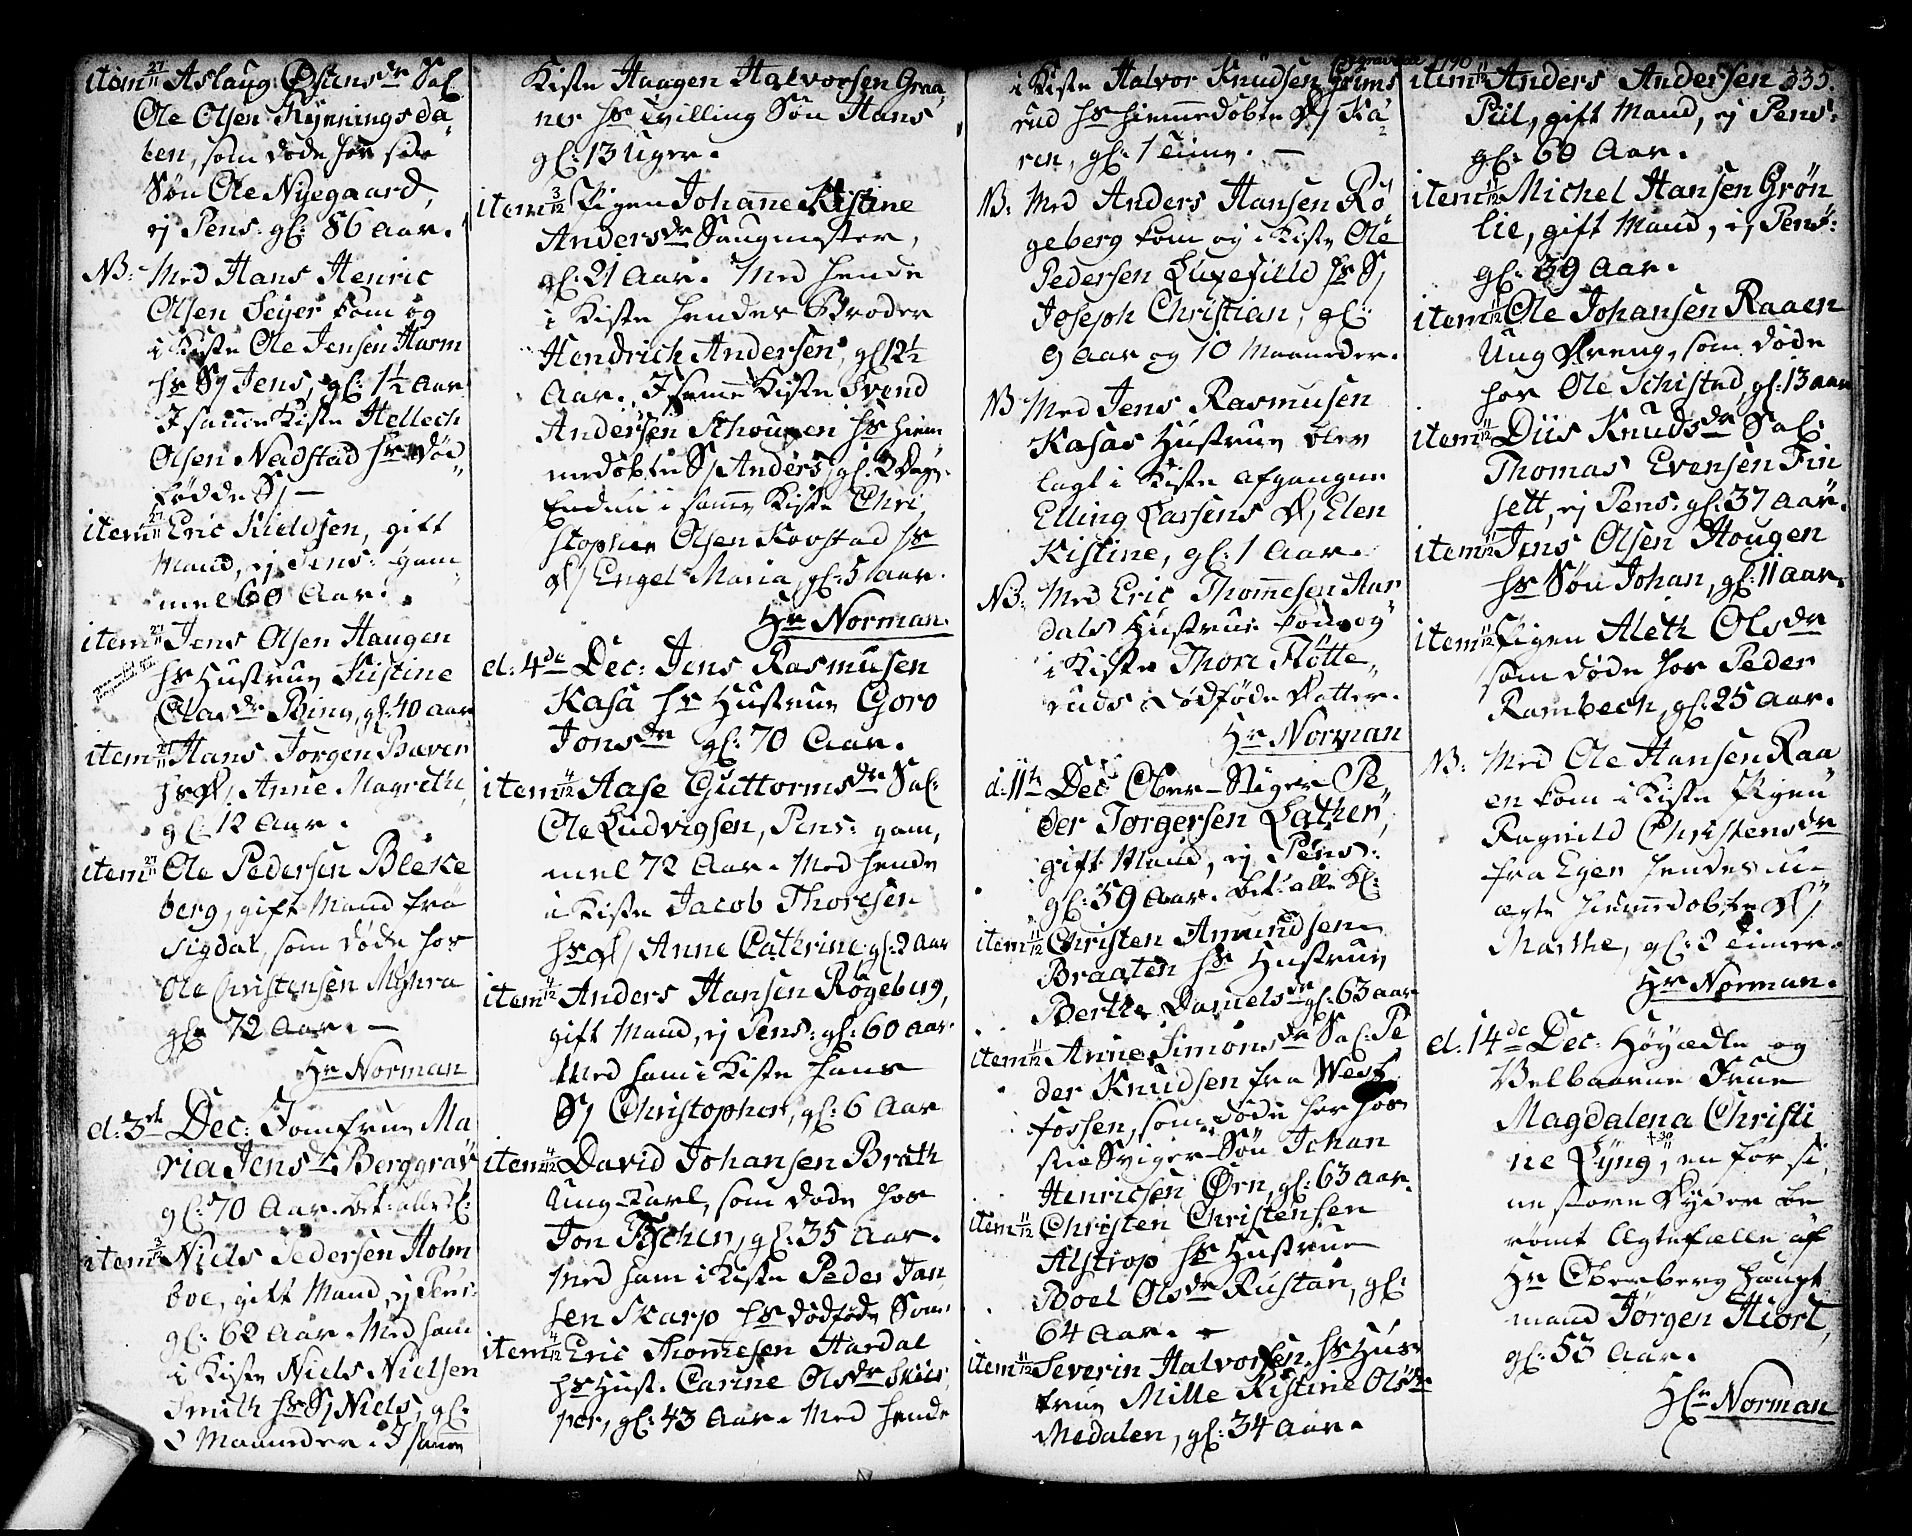 item 27/11 Aslaug Østens dr Sal:
Ole Olsen Kynningsda
len, som døde hos sin
Søn Ole Nyegaard,
ej Pens: gl: 86 Aar.
NB: Med Hans Henric
Olsen Seyer kom og
i Kiste Ole Jensen Harm
hs S/ Jens, gl: 1½ Aar
I samme Kiste Hellech
Olsen Nadstad hs død
fødde S/ —
item 27/11 Eric Kieldsen, gift
Mand, ej Pens: gam
mel 60 Aar.
item 27/11 Jens Olsen Haugen
hs Hustrue Kistine
Olas dr Bing, gl: 40 aar
item 27/11 Hans Jørgen Bæver
hs D/ Anne Magrethe,
gl 12 Aar.
item 27/11 Ole Pedersen Bleke
berg, gift Mand fra
Sigdal, som døde hos
Ole Christensen Myhra
gl: 72 Aar. —
Hr Norman
d: 3de Dec: Jomfrue Ma
ria Jens dr Berggrav
gl: 70 Aar. bet: alle Kl:
item 3/12 Niels Pedersen Holm
boe, gift Mand, ej Pens:
gl: 62 Aar. Med ham
i Kiste Niels Nielsen
Smith hs S/ Niels, gl:
2 Maaneder. I samme
Kiste Haagen Halvorsen Graa
ner hs tvilling Søn Hans
gl: 13 Uger.
item 3/12 Pigen Johanne Kistine
Anders dr Saugmester,
gl: 21 Aar. Med hende
i Kiste hendes Broder
Hendrich Andersen, gl 12½
Aar. I samme Kiste Svend
Andersen Schougen hs hiem
medøbte S/ Anders, gl: 2 Dage.
Endnu i samme Kiste Chri,
stopher Olsen Korstad hs
D/ Engel Maria, gl: 5 aar.
Hr Norman.
d: 4de Dec: Jens Rasmusen
Kasa hs Hustrue Goro
Jons dr gl: 70 Aar.
item 4/12 Aase Guttorms dr Sal:
Ole Ludvigsen, Pens: gam,
mel 72 Aar. Med hende
i Kiste Jacob Thoresen
hs D/ Anne Cathrine gl: 2 Aar
item 4/12 Anders Hansen Røgeberg,
gift Mand, ej Pens: gl: 60 aar.
Med ham i Kiste hans
S/ Christopher, gl: 6 Aar
item 4/12 David Johansen Brath
Ung Karl, som døde hos
Jon Fischer, gl: 35 Aar.
Med ham i Kiste Peder Jan
sen Skarp hs dødfødde Søn.
item 4/12 Eric Thomesen Hardal
hs Hust. Carine Ols dr Skiis,
per, gl: 43 Aar. Med hende
Begravede 1790
i Kiste Halvor Knudsen Grims
rud hs hiemmedøbte D/ Ka
ren, gl: 1 time. —
NB: Med Anders Hansen Rø
geberg kom og i Kiste Ole
Pedersen Luxefield hs S/
Joseph Christian, gl:
9 Aar og 10 Maaneder.
NB Med Jens Rasmusen
Kasas Hustrue blev
lagt i Kiste afgangne
Elling Larsens D/ Elen
Kistine, gl: 1 Aar.
NB: Med Eric Thommesen Aar
dals Hustrue kom og
i Kiste Thore Fløtte,
ruds dødføde Datter.
Hr Norman
d: 11te Dec: Ober-Stiger Pe,
der Torgersen Lather,
gift Mand, ej Pens:
gl: 59 Aar. bet: alle Kl:
item 11/12 Christen Amundsen
Braaten hs Hustrue
Berthe Daniels dr gl: 63 aar
item 11/12 Anne Simons dr Sal: Pe
der Knudsen fra West
fossen, som døde her hos
sin Sviger Søn Johan
Henricsen Ørn, gl: 63 aar.
item 11/12 Christen Christensen
Alstrop hs Hustrue
Boel Ols dr Rustan, gl:
64 Aar. —
item 11/12 Severin Halvorsen hs Hus
true Mille Kistine Ols dr
Medalen, gl: 34 Aar.
item 11/12 Anders Andersen 335.
Piil, gift Mand, ej Pens:
gl: 60 Aar.
item 11/12 Michel Hansen Grøn
lie, gift Mand, ej Pens:
gl: 39 Aar.
item 11/12 Ole Johansen Raaen
Ung Dreng, som døde
hos Ole Schistad, gl: 13 aar
item 11/12 Diis Knuds dr Sal:
Thomas Evensen Fin
sett, ej Pens: gl: 37 Aar.
item 11/12 Jens Olsen Hougen
hs Søn Johan, gl: 11 aar.
item 11/12 Pigen Aleth Ols dr
som døde hos Peder
Rambech, gl: 25 Aar.
NB: Med Ole Hansen Raa
en kom i Kiste Pigen
Ragnild Christens dr
fra Eger hendes u
ægte hiemmedøbte D/
Marthe, gl: 2 Timer.
Hr Norman.
d: 14de Dec: Høyædle og
Velbaarne Frue
Magdalena Christi
ne Pyng, en for si,
ne store Dyder be
rømt Ægtefælle af
Hr Oberberg haupt
mand Jørgen Hiort,
gl: 53 Aar.
Hr Norman